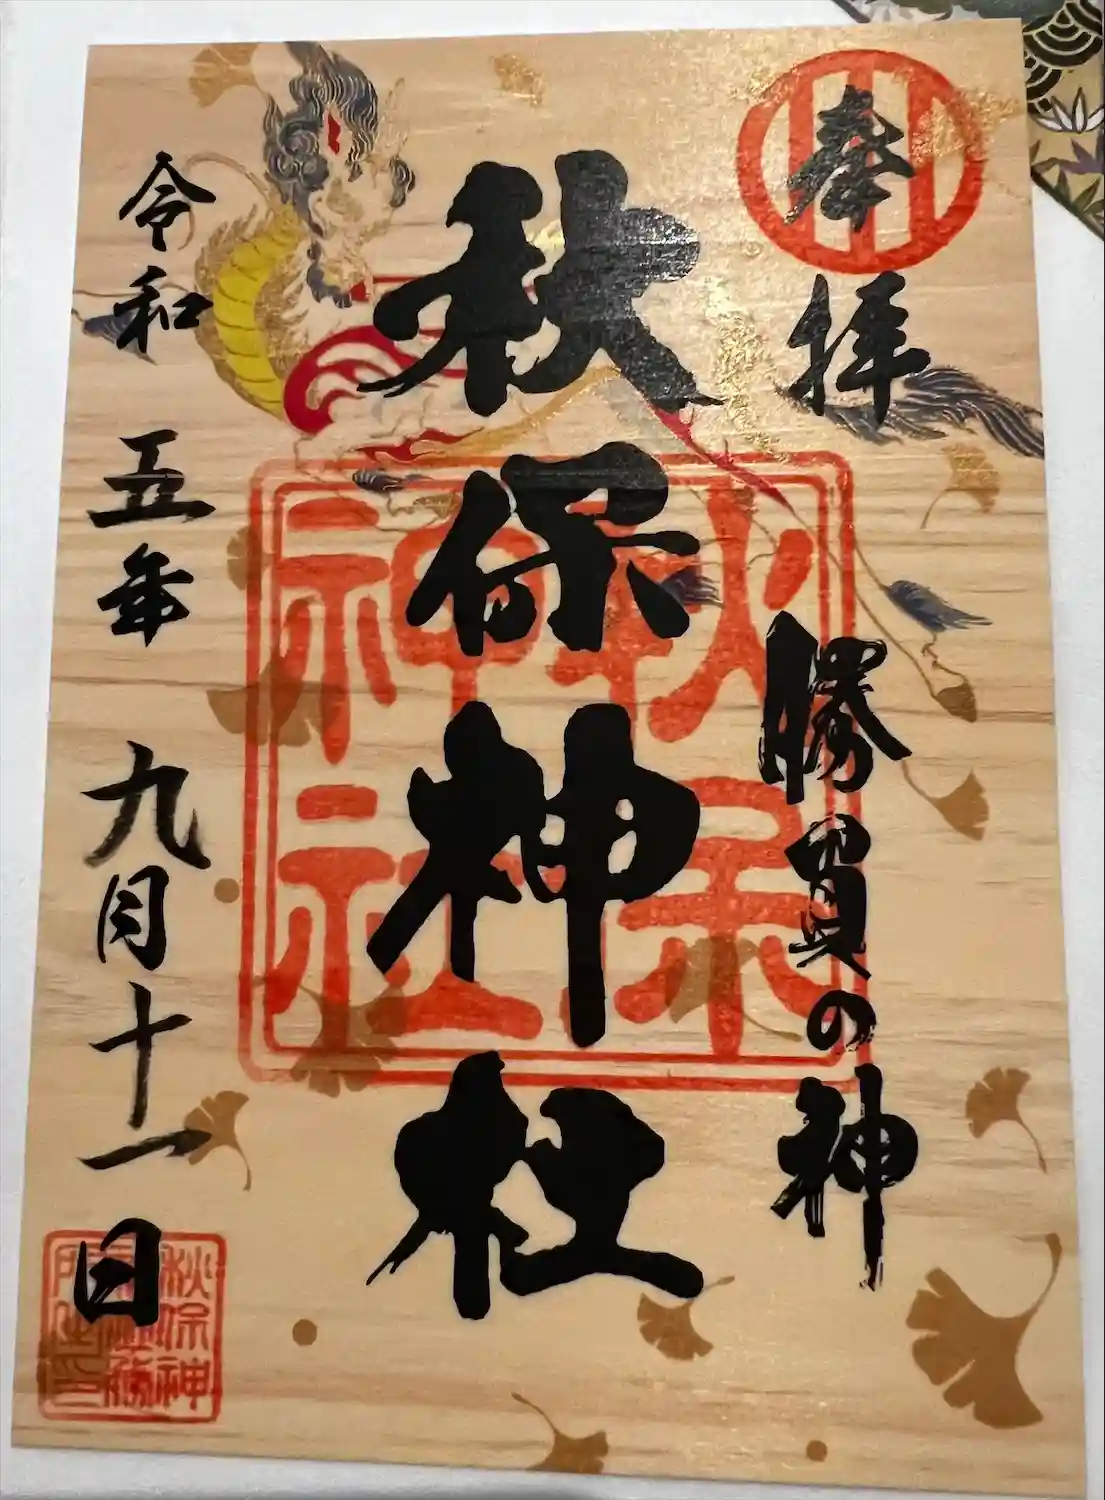 奉拝
勝負の神
秋保神社
秋保神社
令和五年九月十一日
秋保神